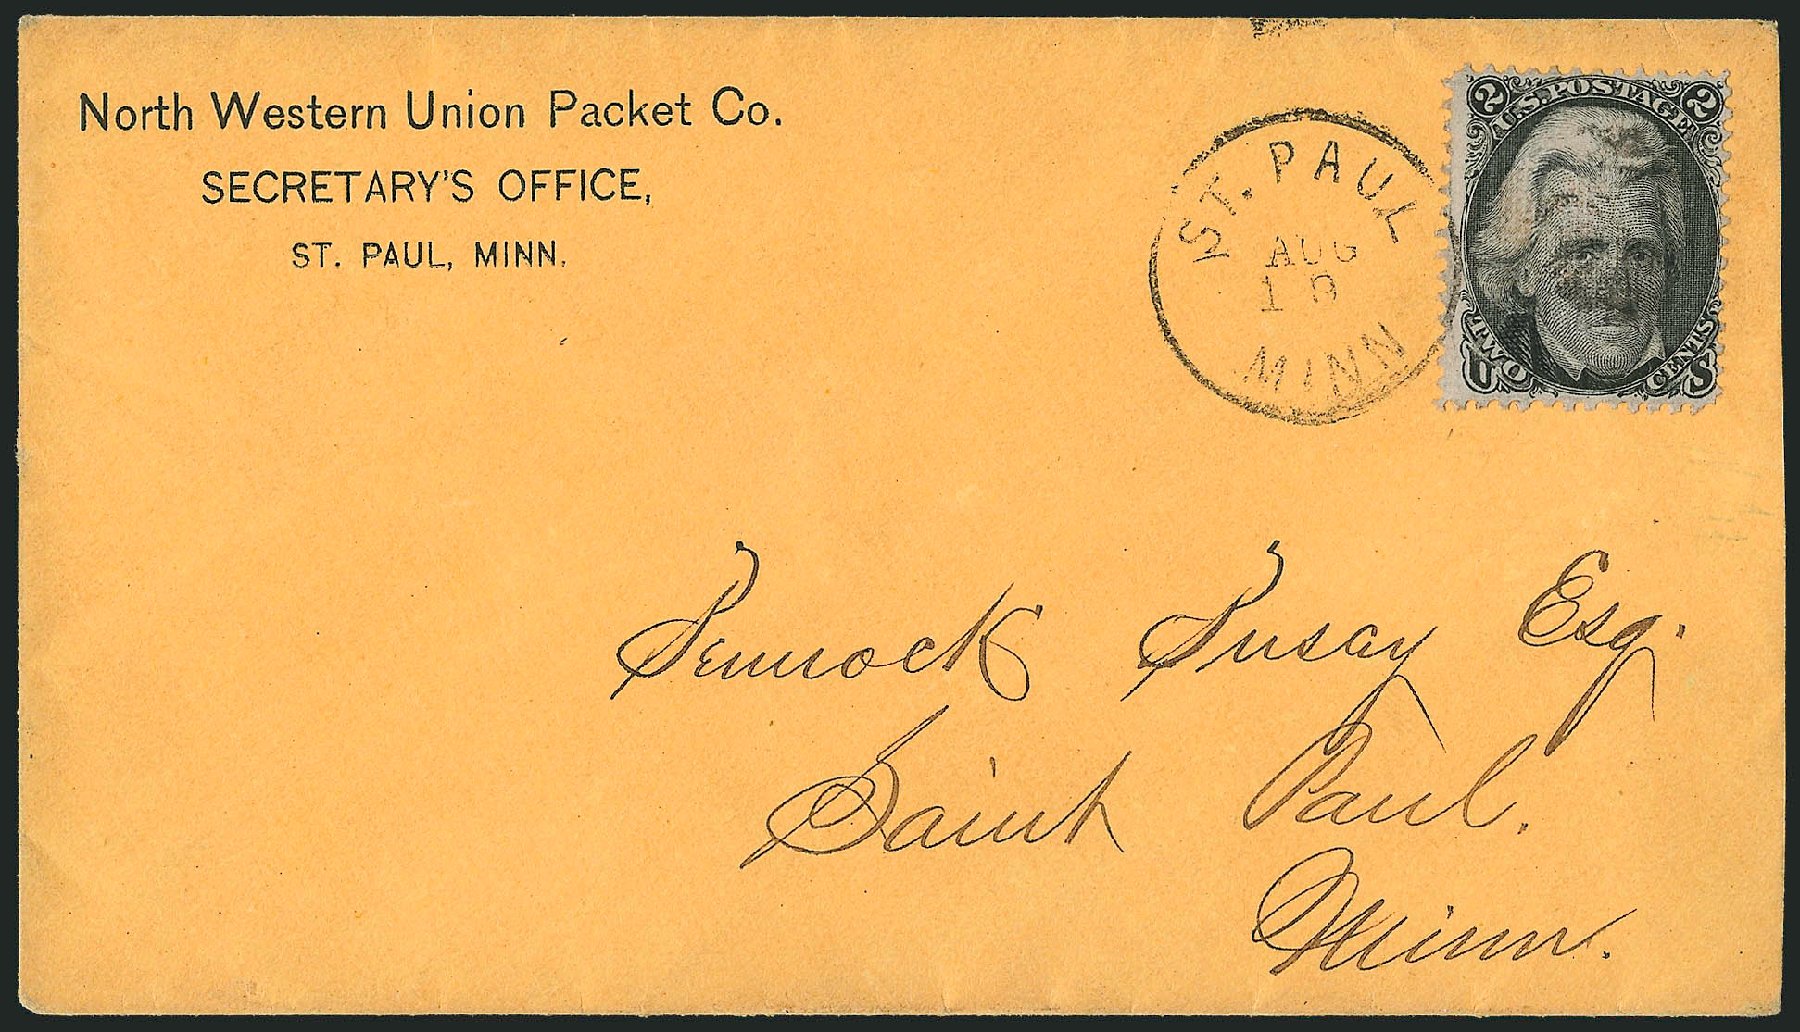 North Western Union Packet Co.
SECRETARY'S OFFICE,
ST. PAUL, MINN.
ST. PAUL
AUG
MINN
2 U.S. POSTAGE 2
TWO CENTS
U S
Pennock Pusey Esq.
Saint Paul.
Minn.